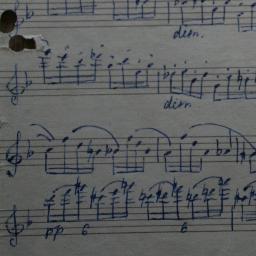 dim.
dim.
pp 6 6